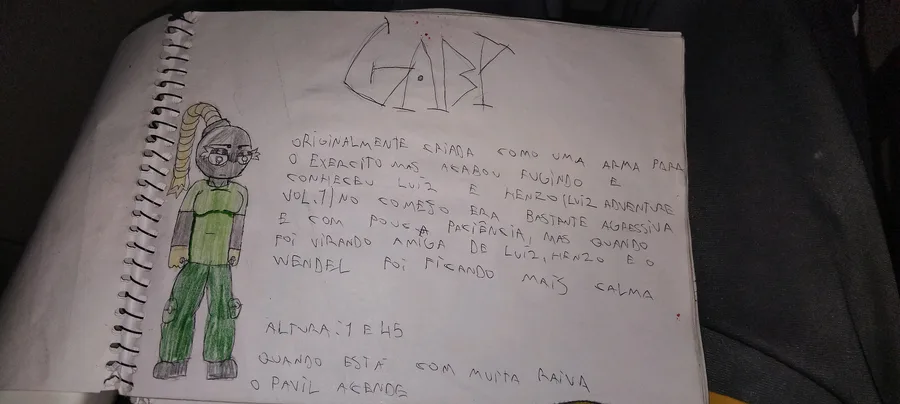 GABI
ORIGINALMENTE CRIADA COMO UMA ARMA PARA
O EXERCITO MAS ACABOU FUGINDO E
CONHECEU LUIZ E HENZO (LUIZ ADVENTURE
VOL.1) NO COMEÇO ERA BASTANTE AGRESSIVA
E COM POUCA PACIÊNCIA, MAS QUANDO
FOI VIRANDO AMIGA DE LUIZ, HENZO E O
WENDEL FOI FICANDO MAIS CALMA
ALTURA: 1 E 45
QUANDO ESTÁ COM MUITA RAIVA
O PAVIL ACENDE